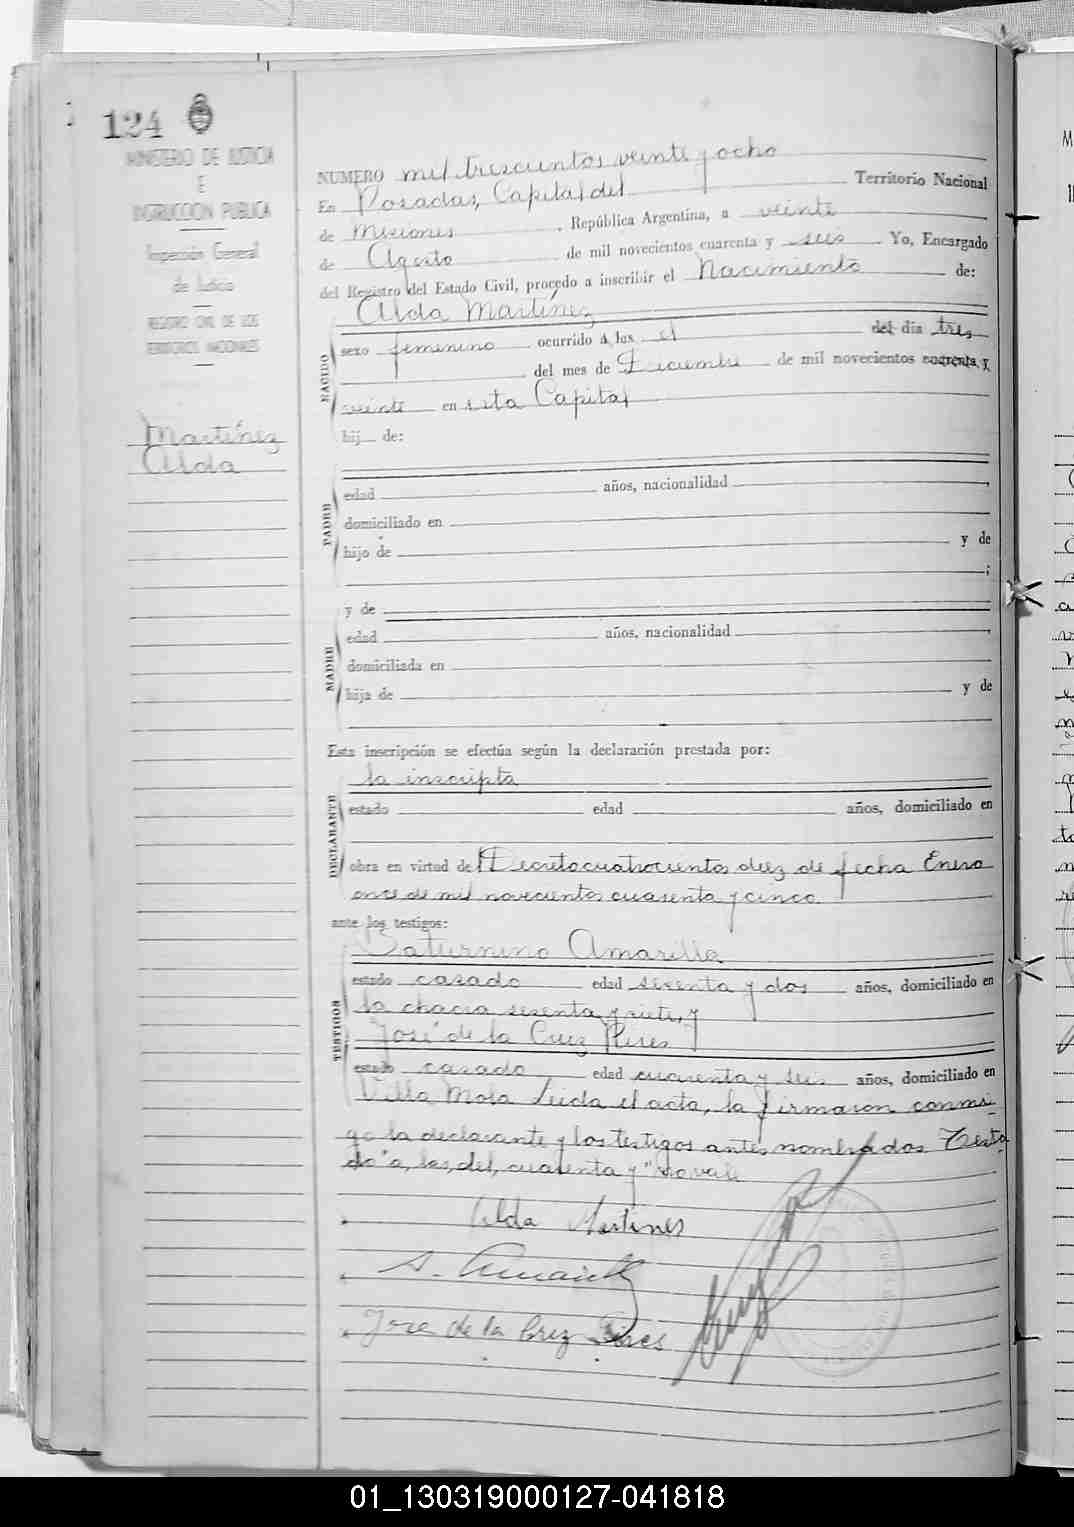 124
MINISTERIO DE JUSTICIA
E
INSTRUCCION PUBLICA
Inspección General
de Justicia
REGISTRO CIVIL DE LOS
TERRITORIOS NACIONALES
Martínez
Alda
NUMERO mil trescientos veinte y ocho
En Posadas, Capital del Territorio Nacional
de Misiones, República Argentina, a veinte
de Agosto de mil novecientos cuarenta y seis Yo, Encargado
del Registro del Estado Civil, procedo a inscribir el Nacimiento de:
NACIDO
Alda Martínez
sexo femenino ocurrido á las el del día tres
del mes de Diciembre de mil novecientos cuarenta y
veinte en esta Capital
hij de:
PADRE
edad años, nacionalidad
domiciliado en
hijo de y de
;
MADRE
y de
edad años, nacionalidad
domiciliada en
hija de y de
Esta inscripción se efectúa según la declaración prestada por:
DECLARANTE
la inscripta
estado edad años, domiciliado en
obra en virtud del Decreto cuatrocientos diez de fecha Enero
once de mil novecientos cuarenta y cinco
ante los testigos:
TESTIGOS
Saturnino Amarilla
estado casado edad sesenta y dos años, domiciliado en
la chacra sesenta y siete, y
José de la Cruz Pires
estado casado edad cuarenta y seis años, domiciliado en
Villa Mola Leida el acta, la firmaron conmi-
go la declarante y los testigos antes nombrados. Testa
do "a, las, del, cuarenta y" no vale
Alda Martines
S. Amarilla
Jose de la Cruz Pires
01_130319000127-041818